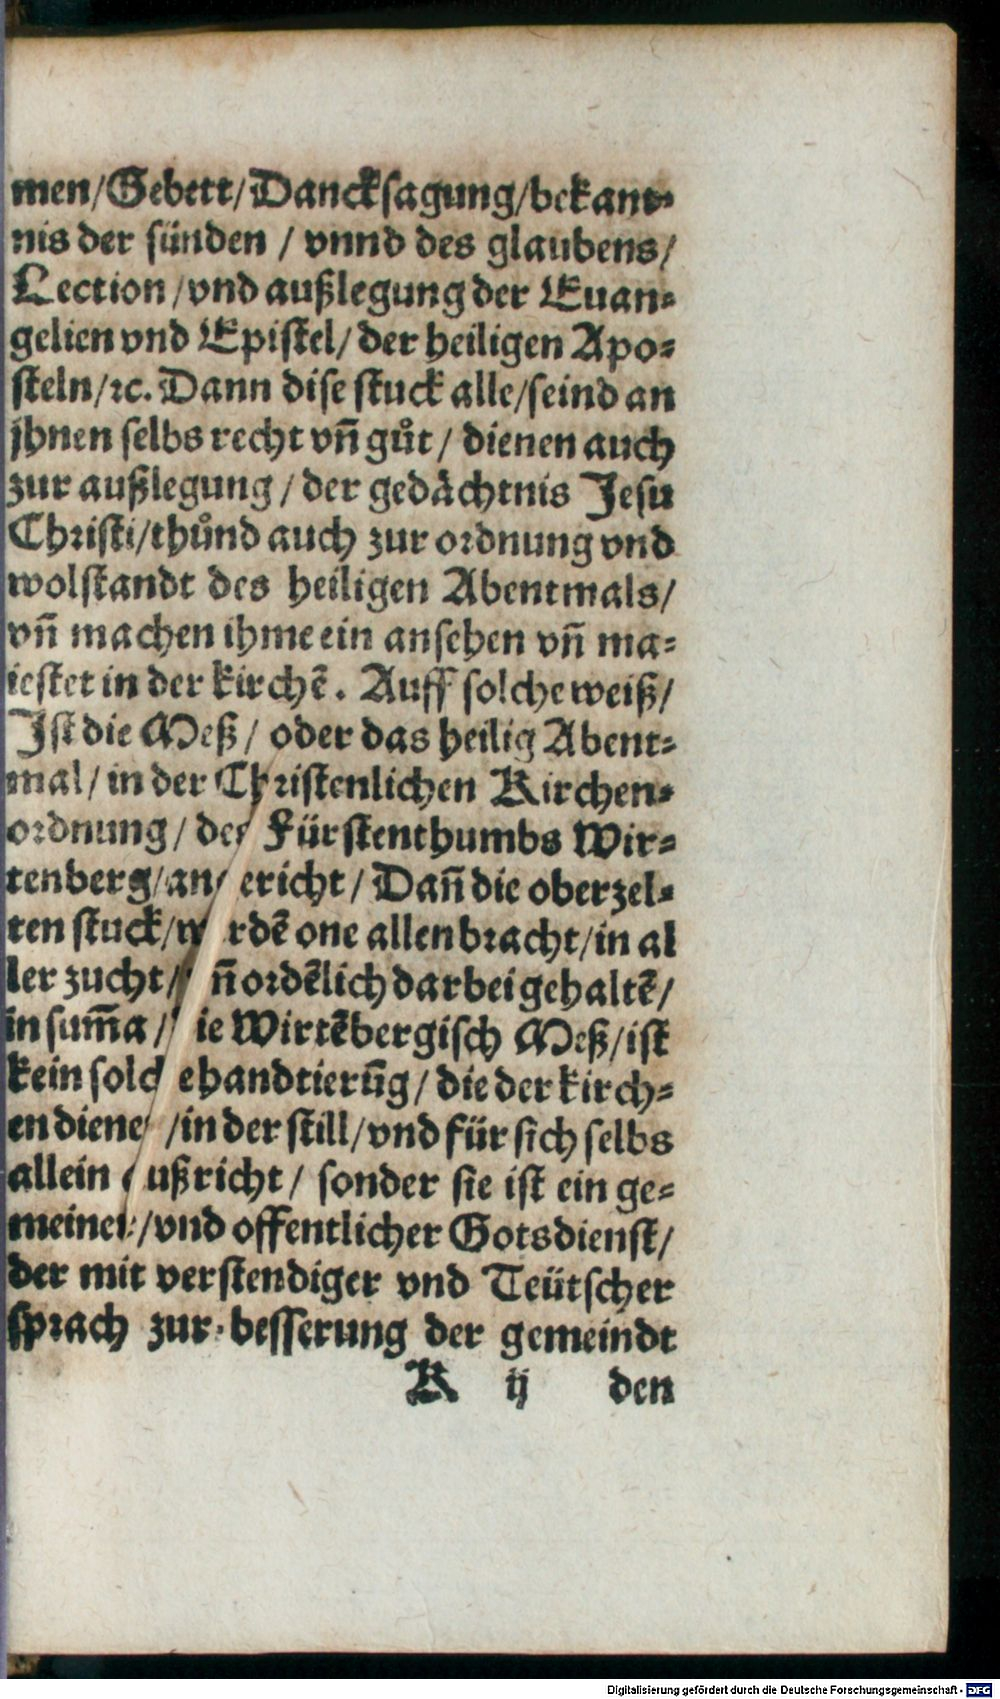 men/Gebett/Dancksagung/bekant⸗
nis der sünden / vnnd des glaubens/
Lection/vnd außlegung der Euan⸗
gelien vnd Epistel/ der heiligen Apo⸗
steln/ꝛc. Dann dise stuck alle/seind an
jhnen selbs recht vñ gůt / dienen auch
zur außlegung / der gedächtnis Jesu
Christi/thůnd auch zur ordnung vnd
wolstandt des heiligen Abentmals/
vñ machen ihme ein ansehen vñ ma⸗
iestet in der kirchē. Auff solche weiß/
Ist die Meß / oder das heilig Abent⸗
mal/ in der Christenlichen Kirchen⸗
ordnung/ des Fürstenthumbs Wir⸗
tenberg/angericht/ Dañ die oberzel⸗
ten stuck/werdē one allen bracht/in al
ler zucht/vñ ordēlich darbei gehaltē/
in sum̄a / die Wirtēbergisch Meß/ist
kein solche handtierūg/ die der kirch⸗
en diener/in der still/vnd für sich selbs
allein außricht/ sonder sie ist ein ge⸗
meiner/vnd offentlicher Gotsdienst/
der mit verstendiger vnd Teütscher
sprach zur besserung der gemeindt
K ij den
Digitalisierung gefördert durch die Deutsche Forschungsgemeinschaft - DFG